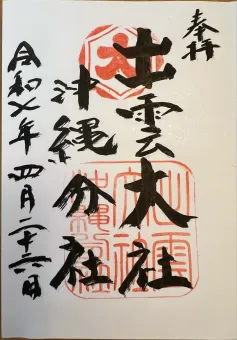 奉拝
出雲大社
沖縄分社
令和七年四月二十六日